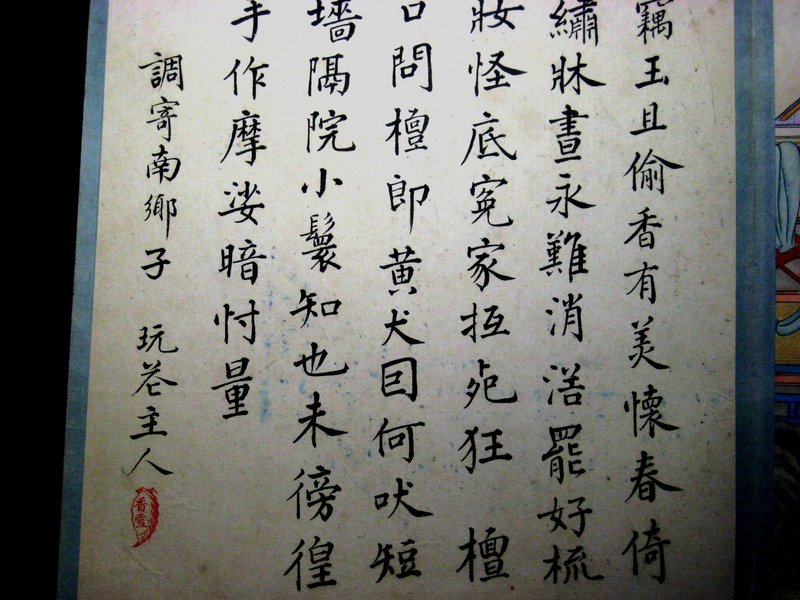 竊玉且偷香有美懷春倚
繡牀晝永難消浴罷好梳
妝怪底冤家抵死狂 檀
口問檀郎黃犬囙何吠短
墻隔院小鬟知也未徬徨
手作摩娑暗忖量
調寄南鄉子 玩花主人
香雪